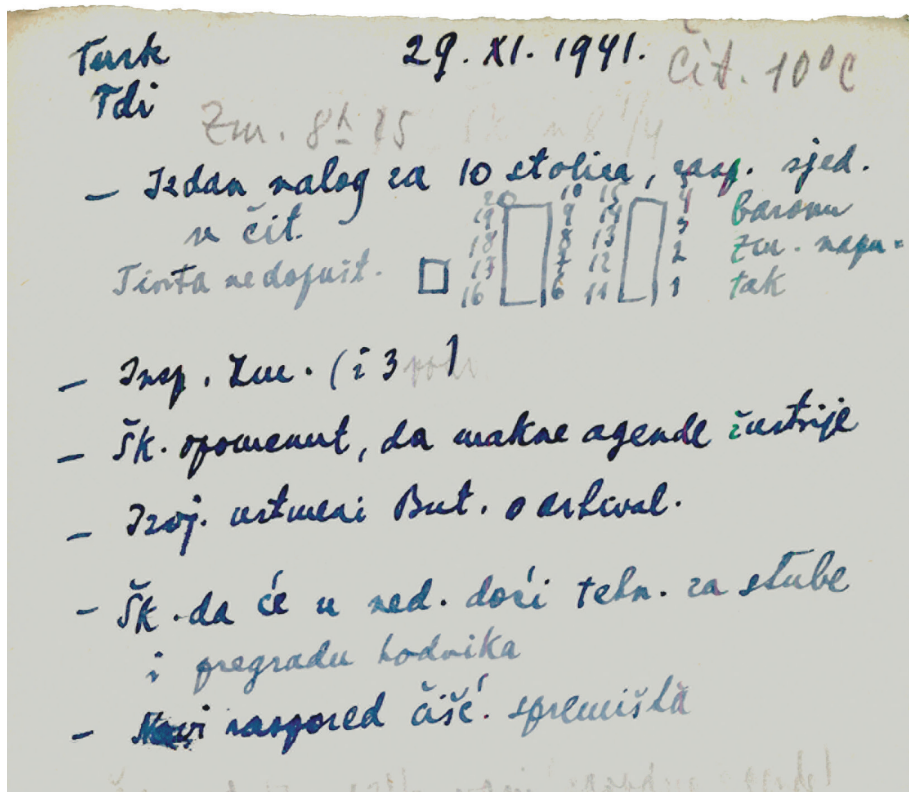 Turk 29. XI. 1941. Čit. 10°C
Tdi
Zm. 8h 15
– Izdan nalog za 10 stolica, rasp. sjed.
u čit.
Tinta nedopušt.
20 10 15
19 9 14 3
18 8 13 2
17 7 12
16 6 11 1
baronu
Zm. napu-
tak
– Insp. Zm. (i 3 )
– Šk. opomenut, da makne agende žustrije
– Izvj. ustmeni But. o arhival.
– Šk. da će u ned. doći tehn. za stube
i pregradu hodnika
– Novi raspored čišć. spremišta